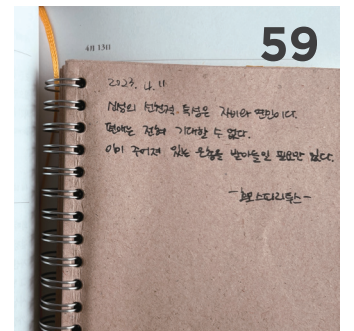 59
4월 13일
2023. 4. 11
신성의 선천적 특성은 자비와 연민이다.
편애는 전혀 기대할 수 없다.
이미 주어져 있는 은총을 받아들일 필요만 있다.
-호모스피리투스-